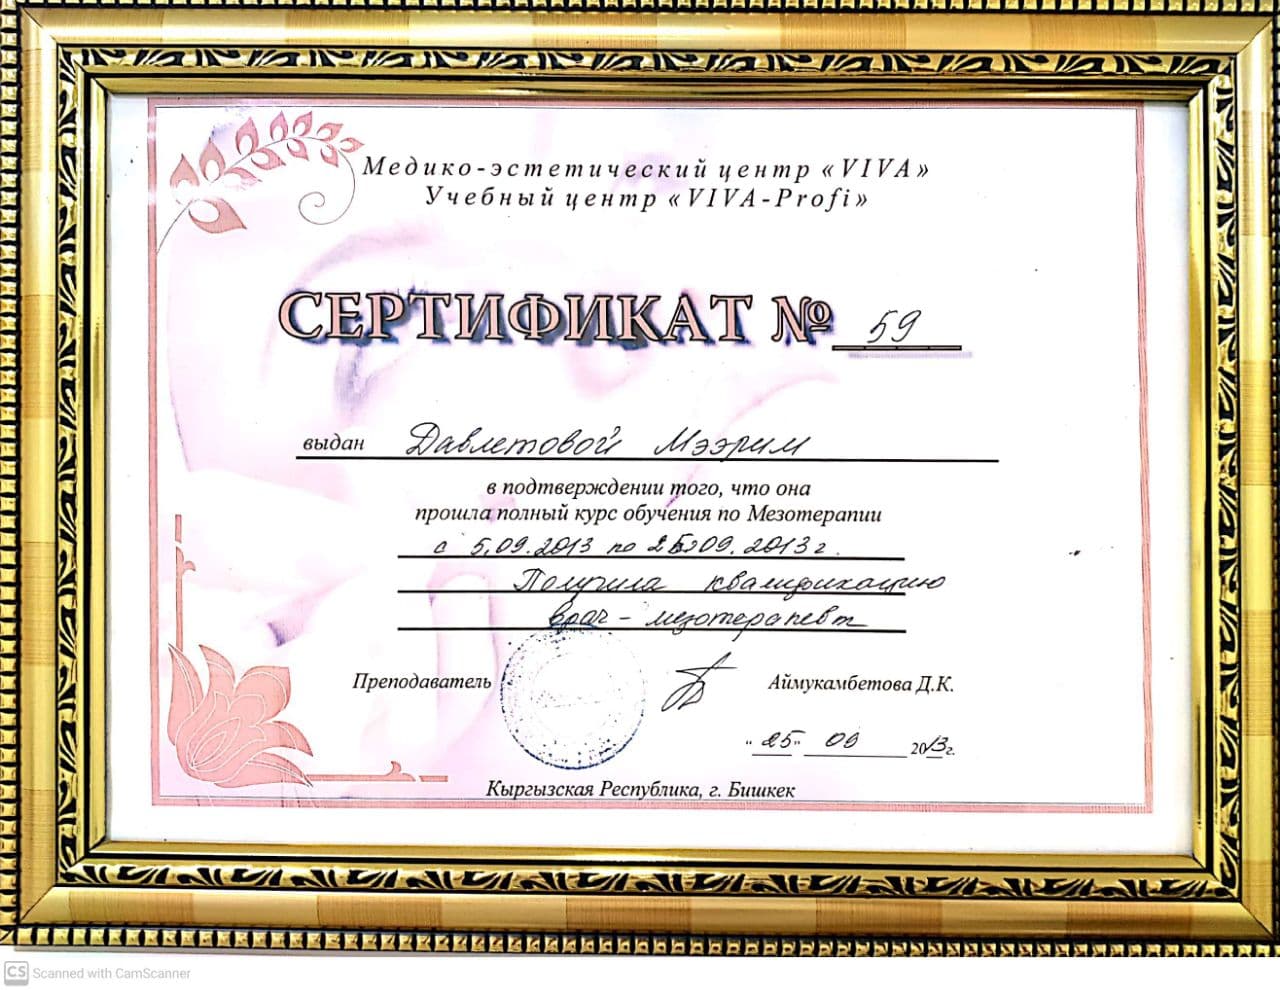 Медико-эстетический центр «VIVA»
Учебный центр «VIVA-Profi»
СЕРТИФИКАТ № 59
выдан Давлетовой Мээрим
в подтверждении того, что она
прошла полный курс обучения по Мезотерапии
с 5.09.2013 по 25.09.2013 г.
Получила квалификацию
врач - мезотерапевт
Преподаватель Аймукамбетова Д.К.
" 25 " 09 2013г.
Кыргызская Республика, г. Бишкек
CS Scanned with CamScanner